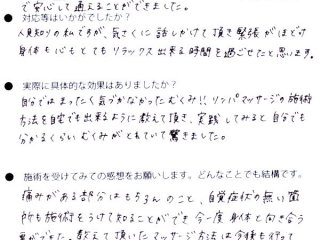 で安心して通えることができました。
● 対応等はいかがでしたか?
人見知りの私ですが、気さくに話しかけて頂き緊張がほどけ
身体も心もとてもリラックス出来る時間を過ごせたと思います。
● 実際に具体的な効果はありましたか?
自分ではまったく気づかなかったむくみ!! リンパマッサージの施術
方法を自宅でも出来るように教えて頂き、実践してみると自分でも
分かるくらいむくみがとれていて驚きました。
● 施術を受けてみての感想をお願いします。どんなことでも結構です。
痛みがある部分はもちろんのこと、自覚症状の無い箇
所も施術をうけて知ることができ 今一度身体と向き合う
教えて頂いたマッサージ方法は今後も行って